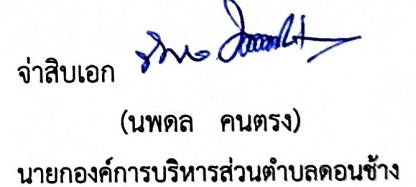 จ่าสิบเอก
(นพดล คนตรง)
นายกองค์การบริหารส่วนตำบลดอนช้าง